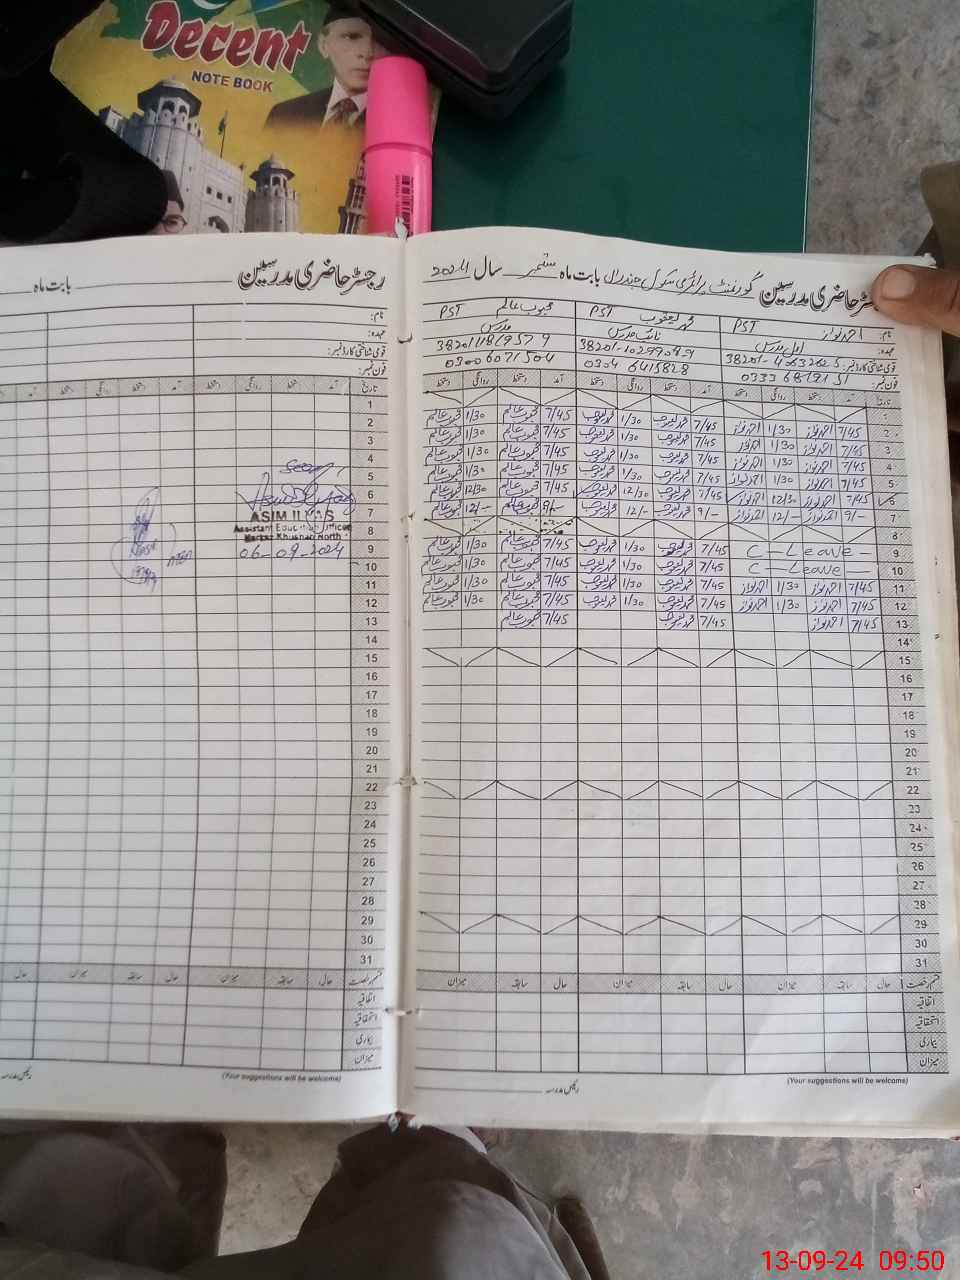 Decent
NOTE BOOK
رجسٹر حاضری مدرسین گورنمنٹ پرائمری سکول بابت ماہ ستمبر سال 2024
نام: احمد نواز PST محمد یعقوب PST محبوب عالم PST
عہدہ: اول مدرس نائب مدرس مدرس
قومی شناختی کارڈ نمبر:
فون نمبر: 0304 6415828 03006071504
تاریخ آمد دستخط روانگی دستخط آمد دستخط روانگی دستخط آمد دستخط روانگی دستخط
1
2 7/45 احمد نواز 1/30 احمد نواز 7/45 محمد یعقوب 1/30 محمد یعقوب 7/45 محبوب عالم 1/30 محبوب عالم
3 7/45 احمد نواز 1/30 احمد نواز 7/45 محمد یعقوب 1/30 محمد یعقوب 7/45 محبوب عالم 1/30 محبوب عالم
4 7/45 احمد نواز 1/30 احمد نواز 7/45 محمد یعقوب 1/30 محمد یعقوب 7/45 محبوب عالم 1/30 محبوب عالم
5 7/45 احمد نواز 1/30 احمد نواز 7/45 محمد یعقوب 1/30 محمد یعقوب 7/45 محبوب عالم 1/30 محبوب عالم
6 7/45 احمد نواز 12/30 احمد نواز 7/45 محمد یعقوب 12/30 محمد یعقوب 7/45 محبوب عالم 12/30 محبوب عالم
7 9/- احمد نواز 12/- احمد نواز 9/- محمد یعقوب 12/- محمد یعقوب 9/- محبوب عالم 12/- محبوب عالم
8
9 C-Leave- 7/45 محمد یعقوب 1/30 محمد یعقوب 7/45 محبوب عالم 1/30 محبوب عالم
10 C-Leave- 7/45 محمد یعقوب 1/30 محمد یعقوب 7/45 محبوب عالم 1/30 محبوب عالم
11 7/45 احمد نواز 1/30 احمد نواز 7/45 محمد یعقوب 1/30 محمد یعقوب 7/45 محبوب عالم 1/30 محبوب عالم
12 7/45 احمد نواز 1/30 احمد نواز 7/45 محمد یعقوب 1/30 محمد یعقوب 7/45 محبوب عالم 1/30 محبوب عالم
13 7/45 احمد نواز 7/45 محمد یعقوب 7/45 محبوب عالم
14
15
16
17
18
19
20
21
22
23
24
25
26
27
28
29
30
31
قسم رخصت حال سابقہ میزان حال سابقہ میزان حال سابقہ میزان
اتفاقیہ
استحقاقیہ
بیماری
میزان
(Your suggestions will be welcome) رئیس مدرسہ
رجسٹر حاضری مدرسین بابت ماہ
نام:
عہدہ:
قومی شناختی کارڈ نمبر:
فون نمبر:
تاریخ آمد دستخط روانگی دستخط آمد دستخط روانگی
1
2
3
4
5 Seen
6
7 ASIM ILYAS
8 Assistant Education Officer
Markaz Khushab North
9 06-09-2024
10
11
12
13
14
15
16
17
18
19
20
21
22
23
24
25
26
27
28
29
30
31
قسم رخصت حال سابقہ میزان حال سابقہ میزان حال
اتفاقیہ
استحقاقیہ
بیماری
میزان
(Your suggestions will be welcome) رئیس مدرسہ
13-09-24 09:50